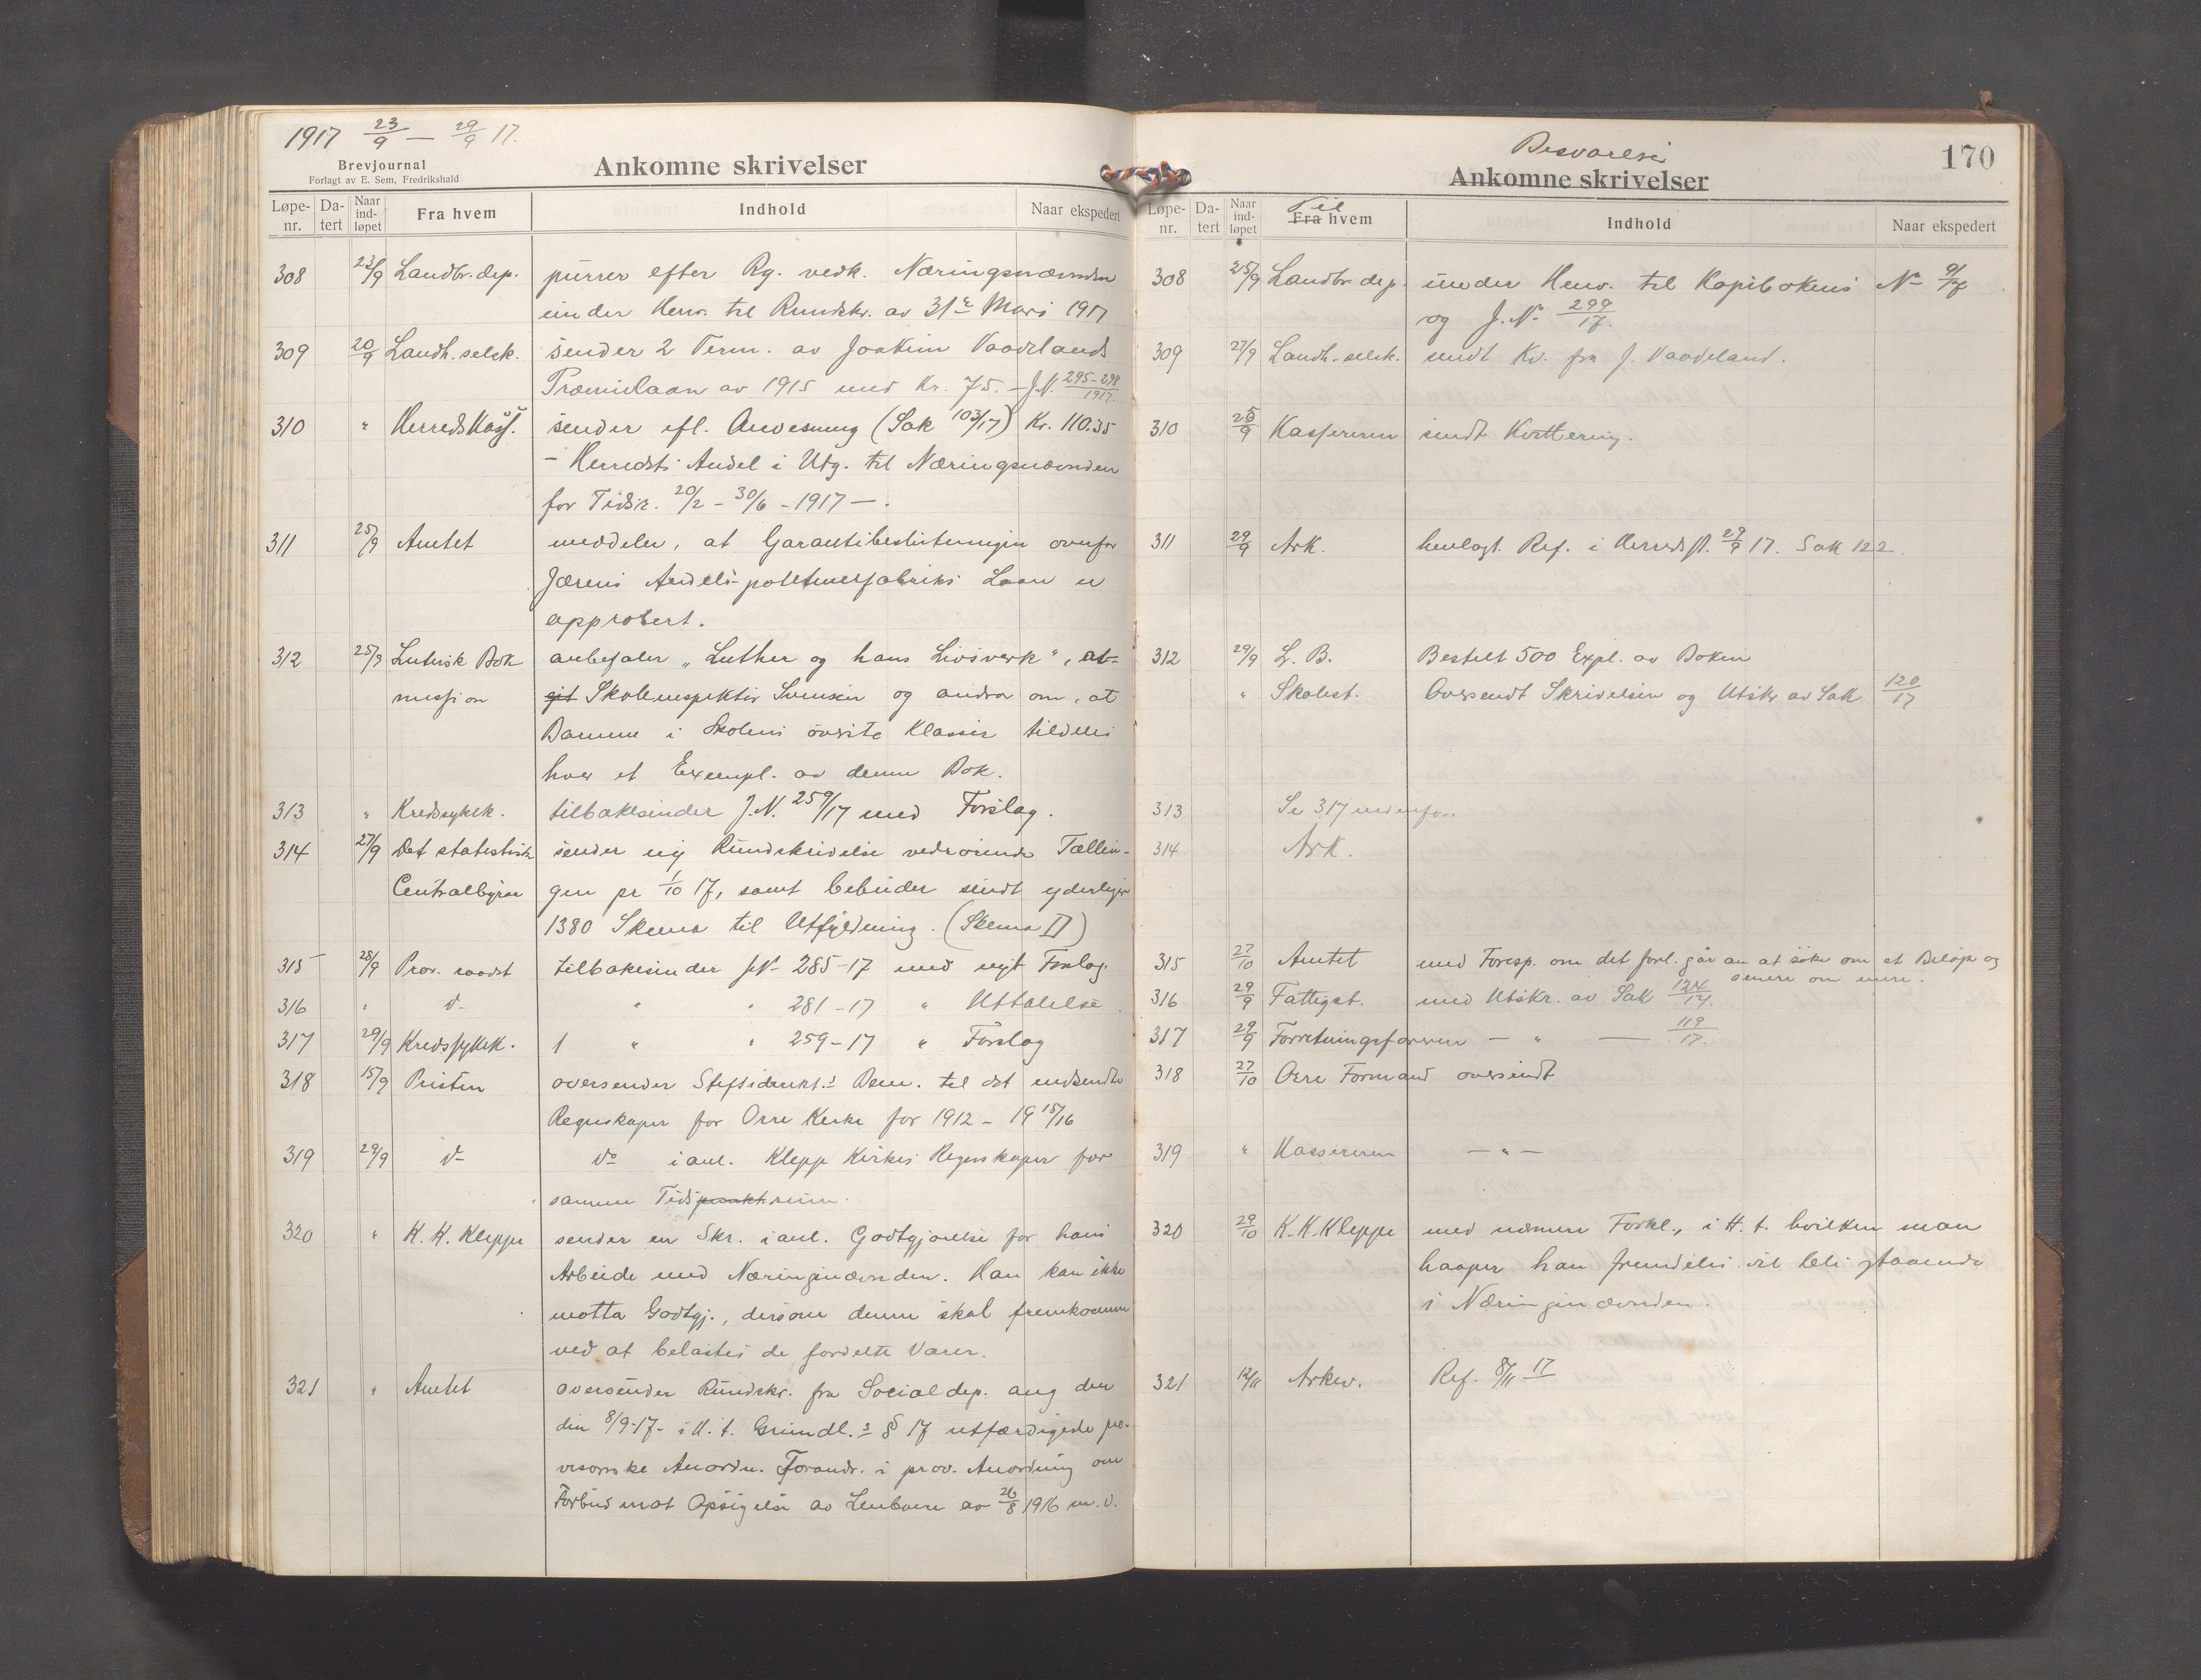 1917 23/9 — 29/9 17.
Brevjournal
Forlagt av E. Sem, Fredrikshald
Ankomne skrivelser
Løpe-nr. Da-tert Naar ind-løpet Fra hvem Indhold Naar ekspedert
308 23/9 Landbr.dep. purrer efter Rg. vedk. Næringsnævnden
under Henv. til Rundskr. av 31te Mars 1917
309 20/9 Landh. selsk. sender 2 Term. av Joakim Vaadelands
Præmielaan av 1915 med Kr. 75. – J.N. 295–298/1917
310 " Herredskass. sender efl. Anvesning (Sak 103/17) Kr. 110.35
– Herredets Andel i Utg. til Næringsnævnden
for Tidsr. 20/2 – 30/6 – 1917 – .
311 25/9 Amtet meddeler, at Garantibeslutningen ovenfor
Jærens Andels-potetmelfabriks Laan er
approbert.
312 25/9 Lutersk Bok anbefaler „Luther og hans Livsverk",
mission git Skoleinspektør Svensen og andra om, at
Barnene i Skolens øverste Klasser tildeles
hver et Exempl. av denne Bok.
313 " Kredssyklk. tilbakesender J.N. 259/17 med Forslag.
314 27/9 Det statistisk sender ny Rundskrivelse vedrørende Tællin-
Centralbyraa gen pr 1/10 17, samt bebuder sendt yderligere
1380 Skema til Utfyldning. (Skema II)
315 28/9 Prov. raadet tilbakesender JN 285–17 med nyt Forslag.
316 " do " " 281–17 " Uttalelse.
317 29/9 Kredssyklk. 1 " " 259–17 " Forslag
318 15/9 Presten oversender Stiftsdirekt.s Dem. til det indsendte
Regnskaper for Orre Kirke for 1912 – 1915/16
319 29/9 do do i anl. Klepp Kirkes Regnskaper for
samme Tidspunkt rum.
320 " K. K. Kleppe sender en Skr. i anl. Godtgjørelse for hans
Arbeide med Næringsnævnden. Han kan ikke
motta Godtgj., dersom denne skal fremkomme
ved at belastes de fordelte Varer.
321 " Amtet oversender Rundskr. fra Socialdep. ang den
den 8/9-17- i H. t. Grundl.s § 17 utfærdigede pro-
visoriske Anordn. Forandr. i prov. Anordning om
Forbud mot Opsigelse av Leieboere av 26/8 1916 m.v.
170
Besvarelse
Ankomne skrivelser
Løpe-nr. Da-tert Naar ind-løpet Til Fra hvem Indhold Naar ekspedert
308 25/9 Landbr.dep. under Henv. til Kopibokens No 9/17
og J.N. 299/17.
309 27/9 Landh.-selsk. sendt Kv. fra J. Vaadeland.
310 25/9 Kassereren sendt Kvittering.
311 29/9 Ark. henlagt. Ref. i Herredsst. 29/9 17. Sak 122.
312 29/9 L. B. Bestilt 500 Expl. av Boken
" Skolest. Oversendt Skrivelsen og Utskr av Sak 120/17
313 Se 317 nedenfor.
314 Ark.
315 27/10 Amtet med Foresp. om det forl. går an at søke om et Beløp og
senere om mere.
316 29/9 Fattigst. med Utskr. av Sak 124/17.
317 29/9 Forretningsføreren – " – 119/17.
318 27/10 Orre Formand oversendt
319 " Kassereren – " –
320 29/10 K. K. Kleppe med nærmere Forkl., i H. t. hvilken man
haaper han fremdeles vil bli staaende
i Næringsnævnden.
321 12/11 Arkiv. Ref. 8/11 17